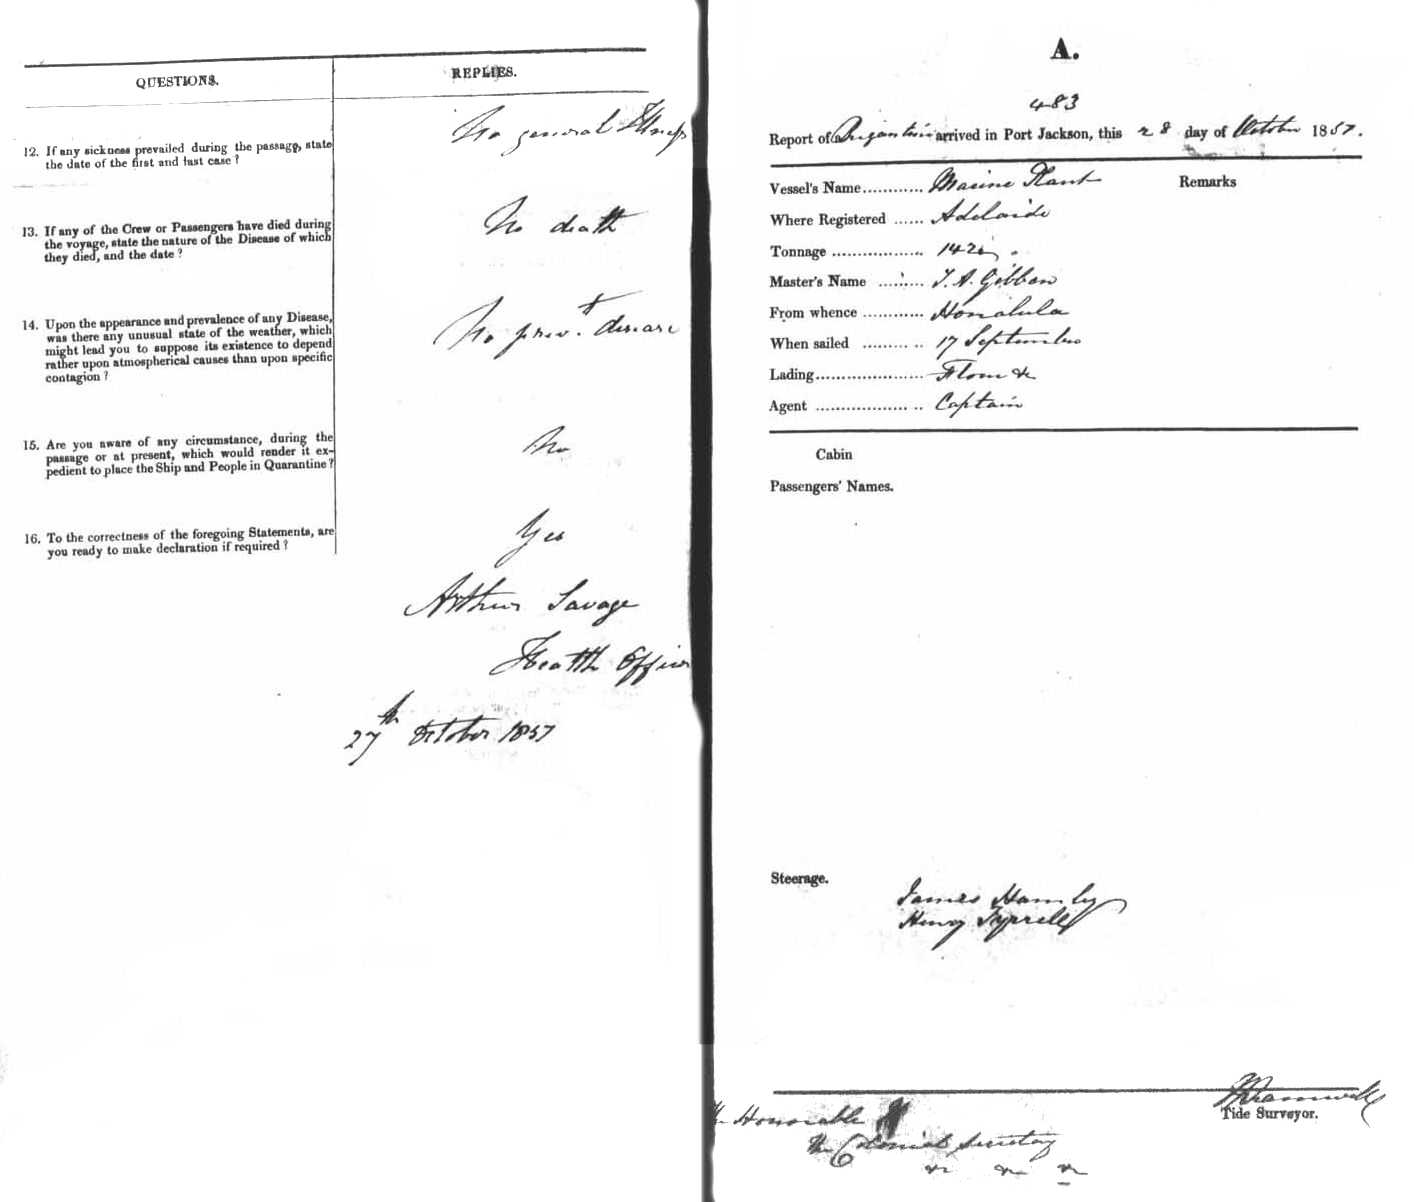 QUESTIONS.
REPLIES.
12. If any sickness prevailed during the passage, state
the date of the first and last case?
No general Illness
13. If any of the Crew or Passengers have died during
the voyage, state the nature of the Disease of which
they died, and the date?
No death
14. Upon the appearance and prevalence of any Disease,
was there any unusual state of the weather, which
might lead you to suppose its existence to depend
rather upon atmospherical causes than upon specific
contagion?
No prev.t disease
15. Are you aware of any circumstance, during the
passage or at present, which would render it ex-
pedient to place the Ship and People in Quarantine?
No
16. To the correctness of the foregoing Statements, are
you ready to make declaration if required?
Yes
Arthur Savage
Health Officer
27th October 1857
A.
483
Report of Brigantine arrived in Port Jackson, this 28 day of October 1857.
Vessel's Name............ Marine Plant
Remarks
Where Registered ...... Adelaide
Tonnage .................. 142
Master's Name ......... Gibbon
From whence ............ Honolulu
When sailed ............ 17 September
Lading...................... Flour &c
Agent ..................... Captain
Cabin
Passengers' Names.
Steerage.
James Hamley
Henry Tyrrell
Tide Surveyor.
The Honorable
The Colonial Secretary
&c &c &c